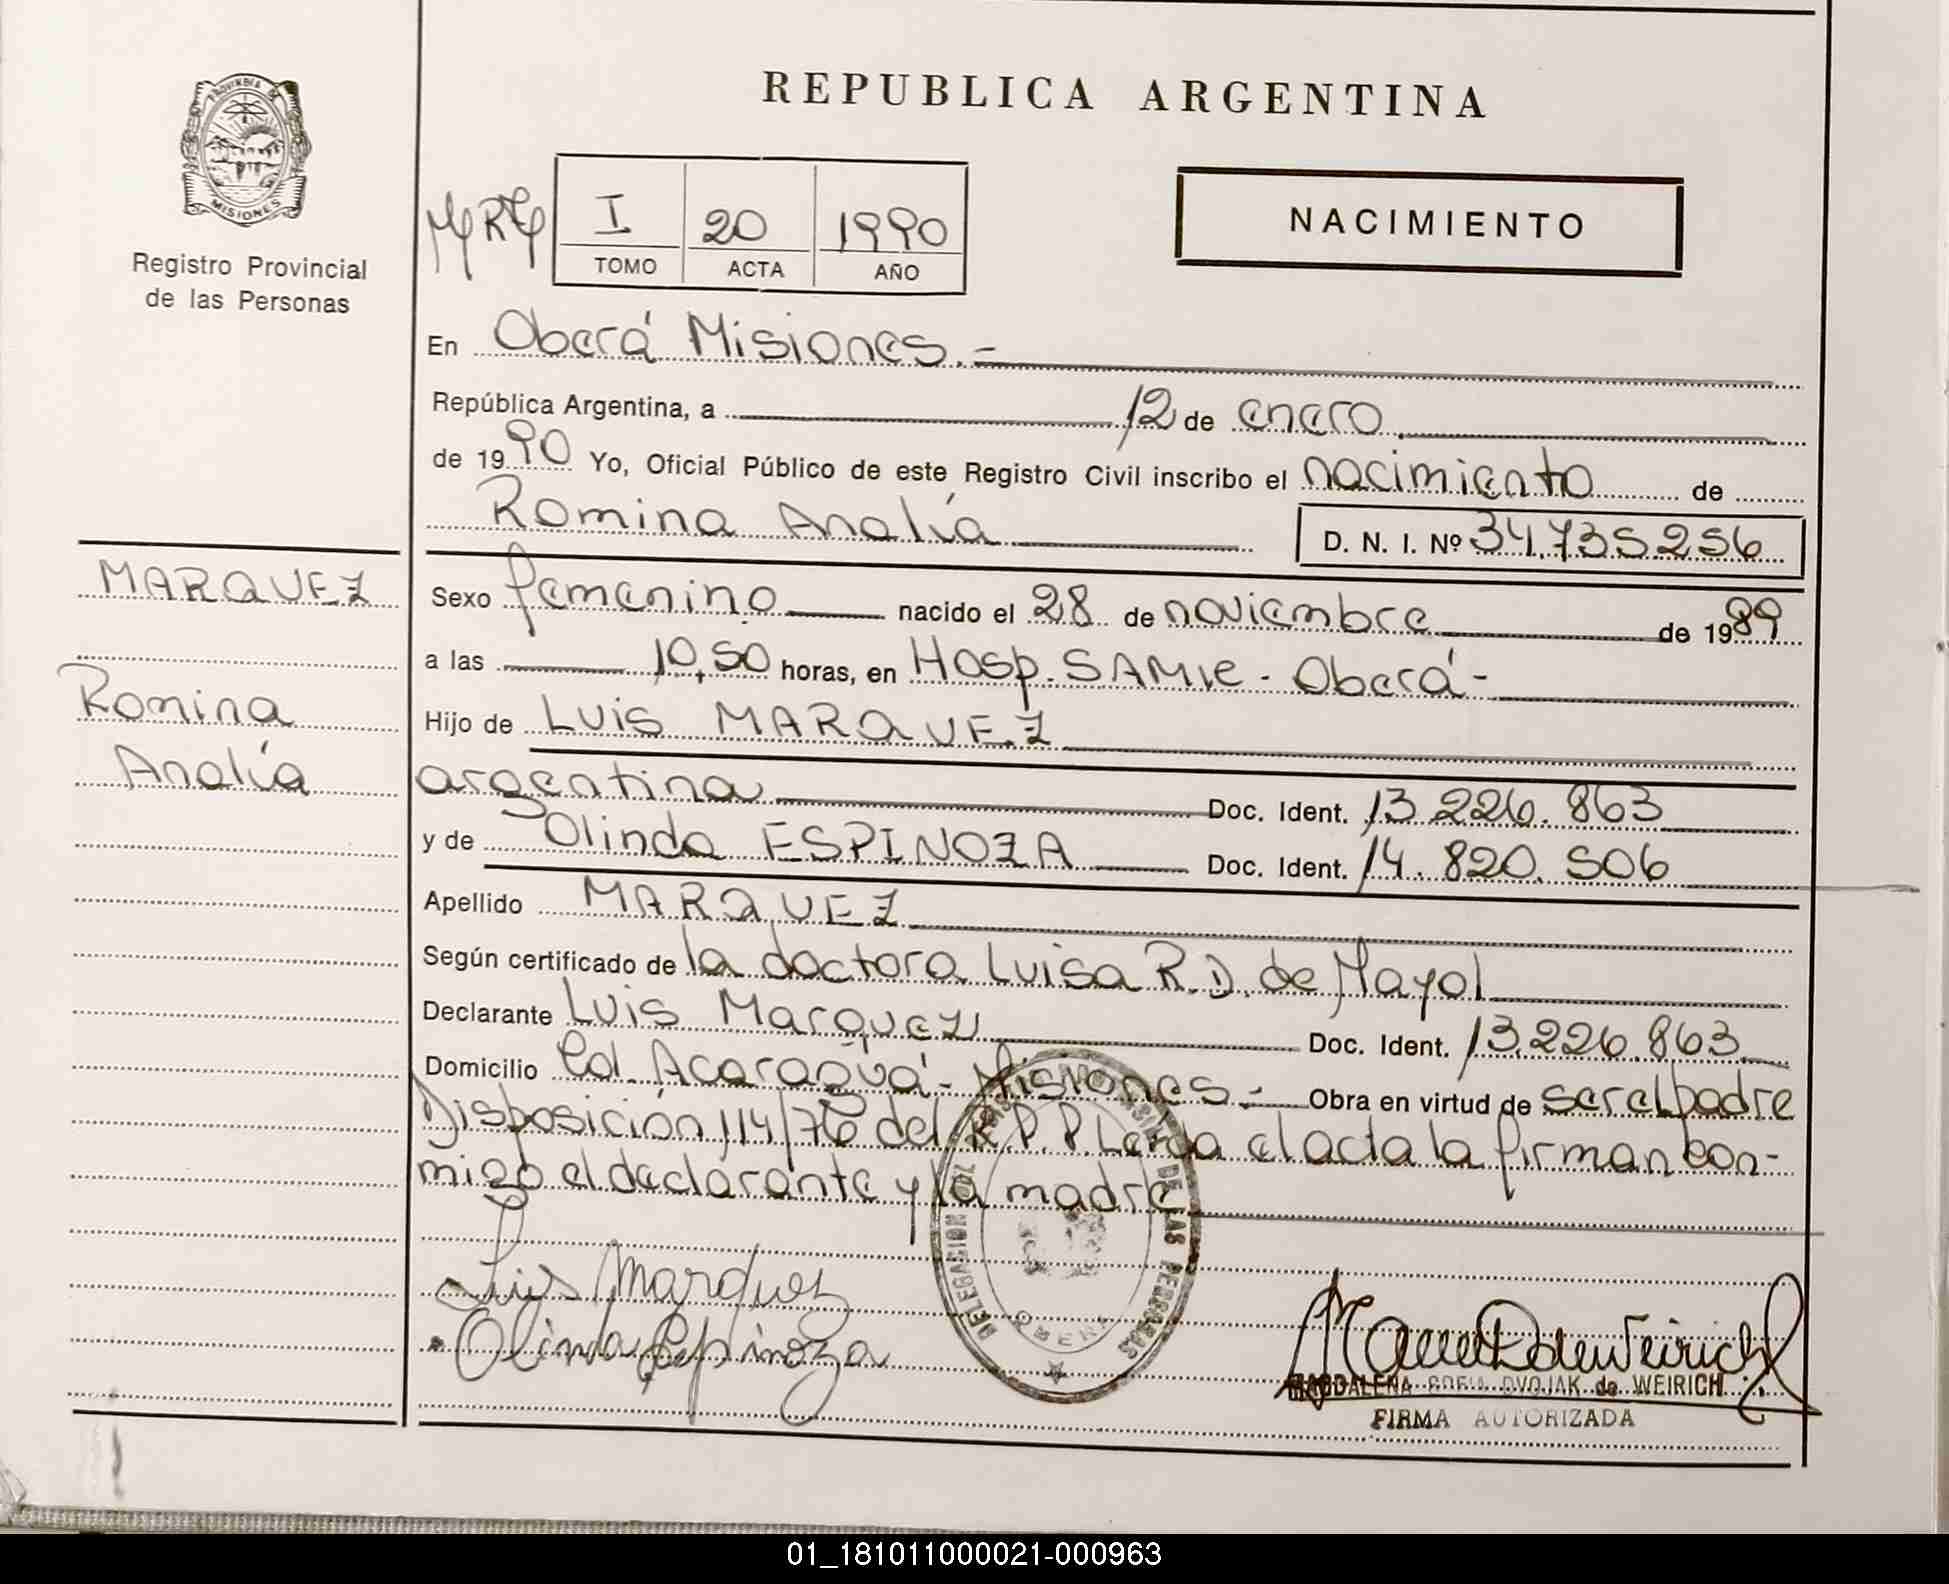 REPUBLICA ARGENTINA
PROVINCIA DE
MISIONES
Registro Provincial
de las Personas
I 20 1990
TOMO ACTA AÑO
NACIMIENTO
En Oberá Misiones.-
República Argentina, a 12 de enero
de 1990 Yo, Oficial Público de este Registro Civil inscribo el nacimiento de
Romina Analía D. N. I. Nº 34.735256
MARQUEZ
Romina
Analía
Sexo femenino nacido el 28 de noviembre de 1989
a las 10,50 horas, en Hosp. SAMIC - Oberá -
Hijo de Luis MARQUEZ
argentina Doc. Ident. 13.226.863
y de Olinda ESPINOZA Doc. Ident. 14.820.506
Apellido MARQUEZ
Según certificado de la doctora Luisa R.D. de Mayol
Declarante Luis Marquez Doc. Ident. 13.226.863
Domicilio Col. Acaraguá - Misiones.- Obra en virtud de ser el padre
Disposición 114/76 del R.P.P. Leída el acta la firman con-
migo el declarante y la madre
Luis Marquez
Olinda Espinoza
DELEGACION DE LAS PERSONAS
MAGDALENA SOFIA DVOJAK de WEIRICH
FIRMA AUTORIZADA
01_181011000021-000963